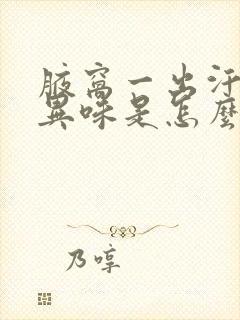 腋窩一出汗
異味是怎麼
乃啍